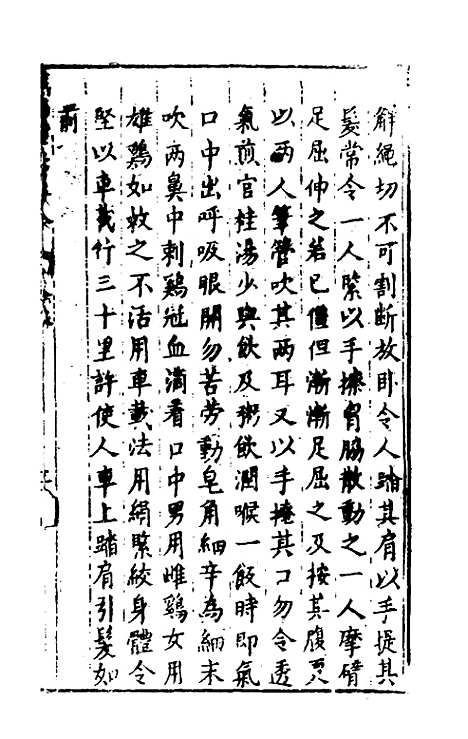 解繩切不可割斷放卧令人踏其肩以手提其
髮常令一人緊以手擦胷脇散動之一人摩臂
足屈伸之若已僵但漸漸足屈之及按其腹
以兩人筆管吹其两耳又以手掩其口勿令透
氣煎官桂湯少與飲及粥飲潤喉一飯時即氣
口中出呼吸眼開勿苦劳動皂角細辛為細末
吹两鼻中刺鷄冠血滴着口中男用雌鷄女用
雄鷄如救之不活用車載法用絹緊絞身體令
堅以車載行三十里許使人車上踏肩引髮如
前